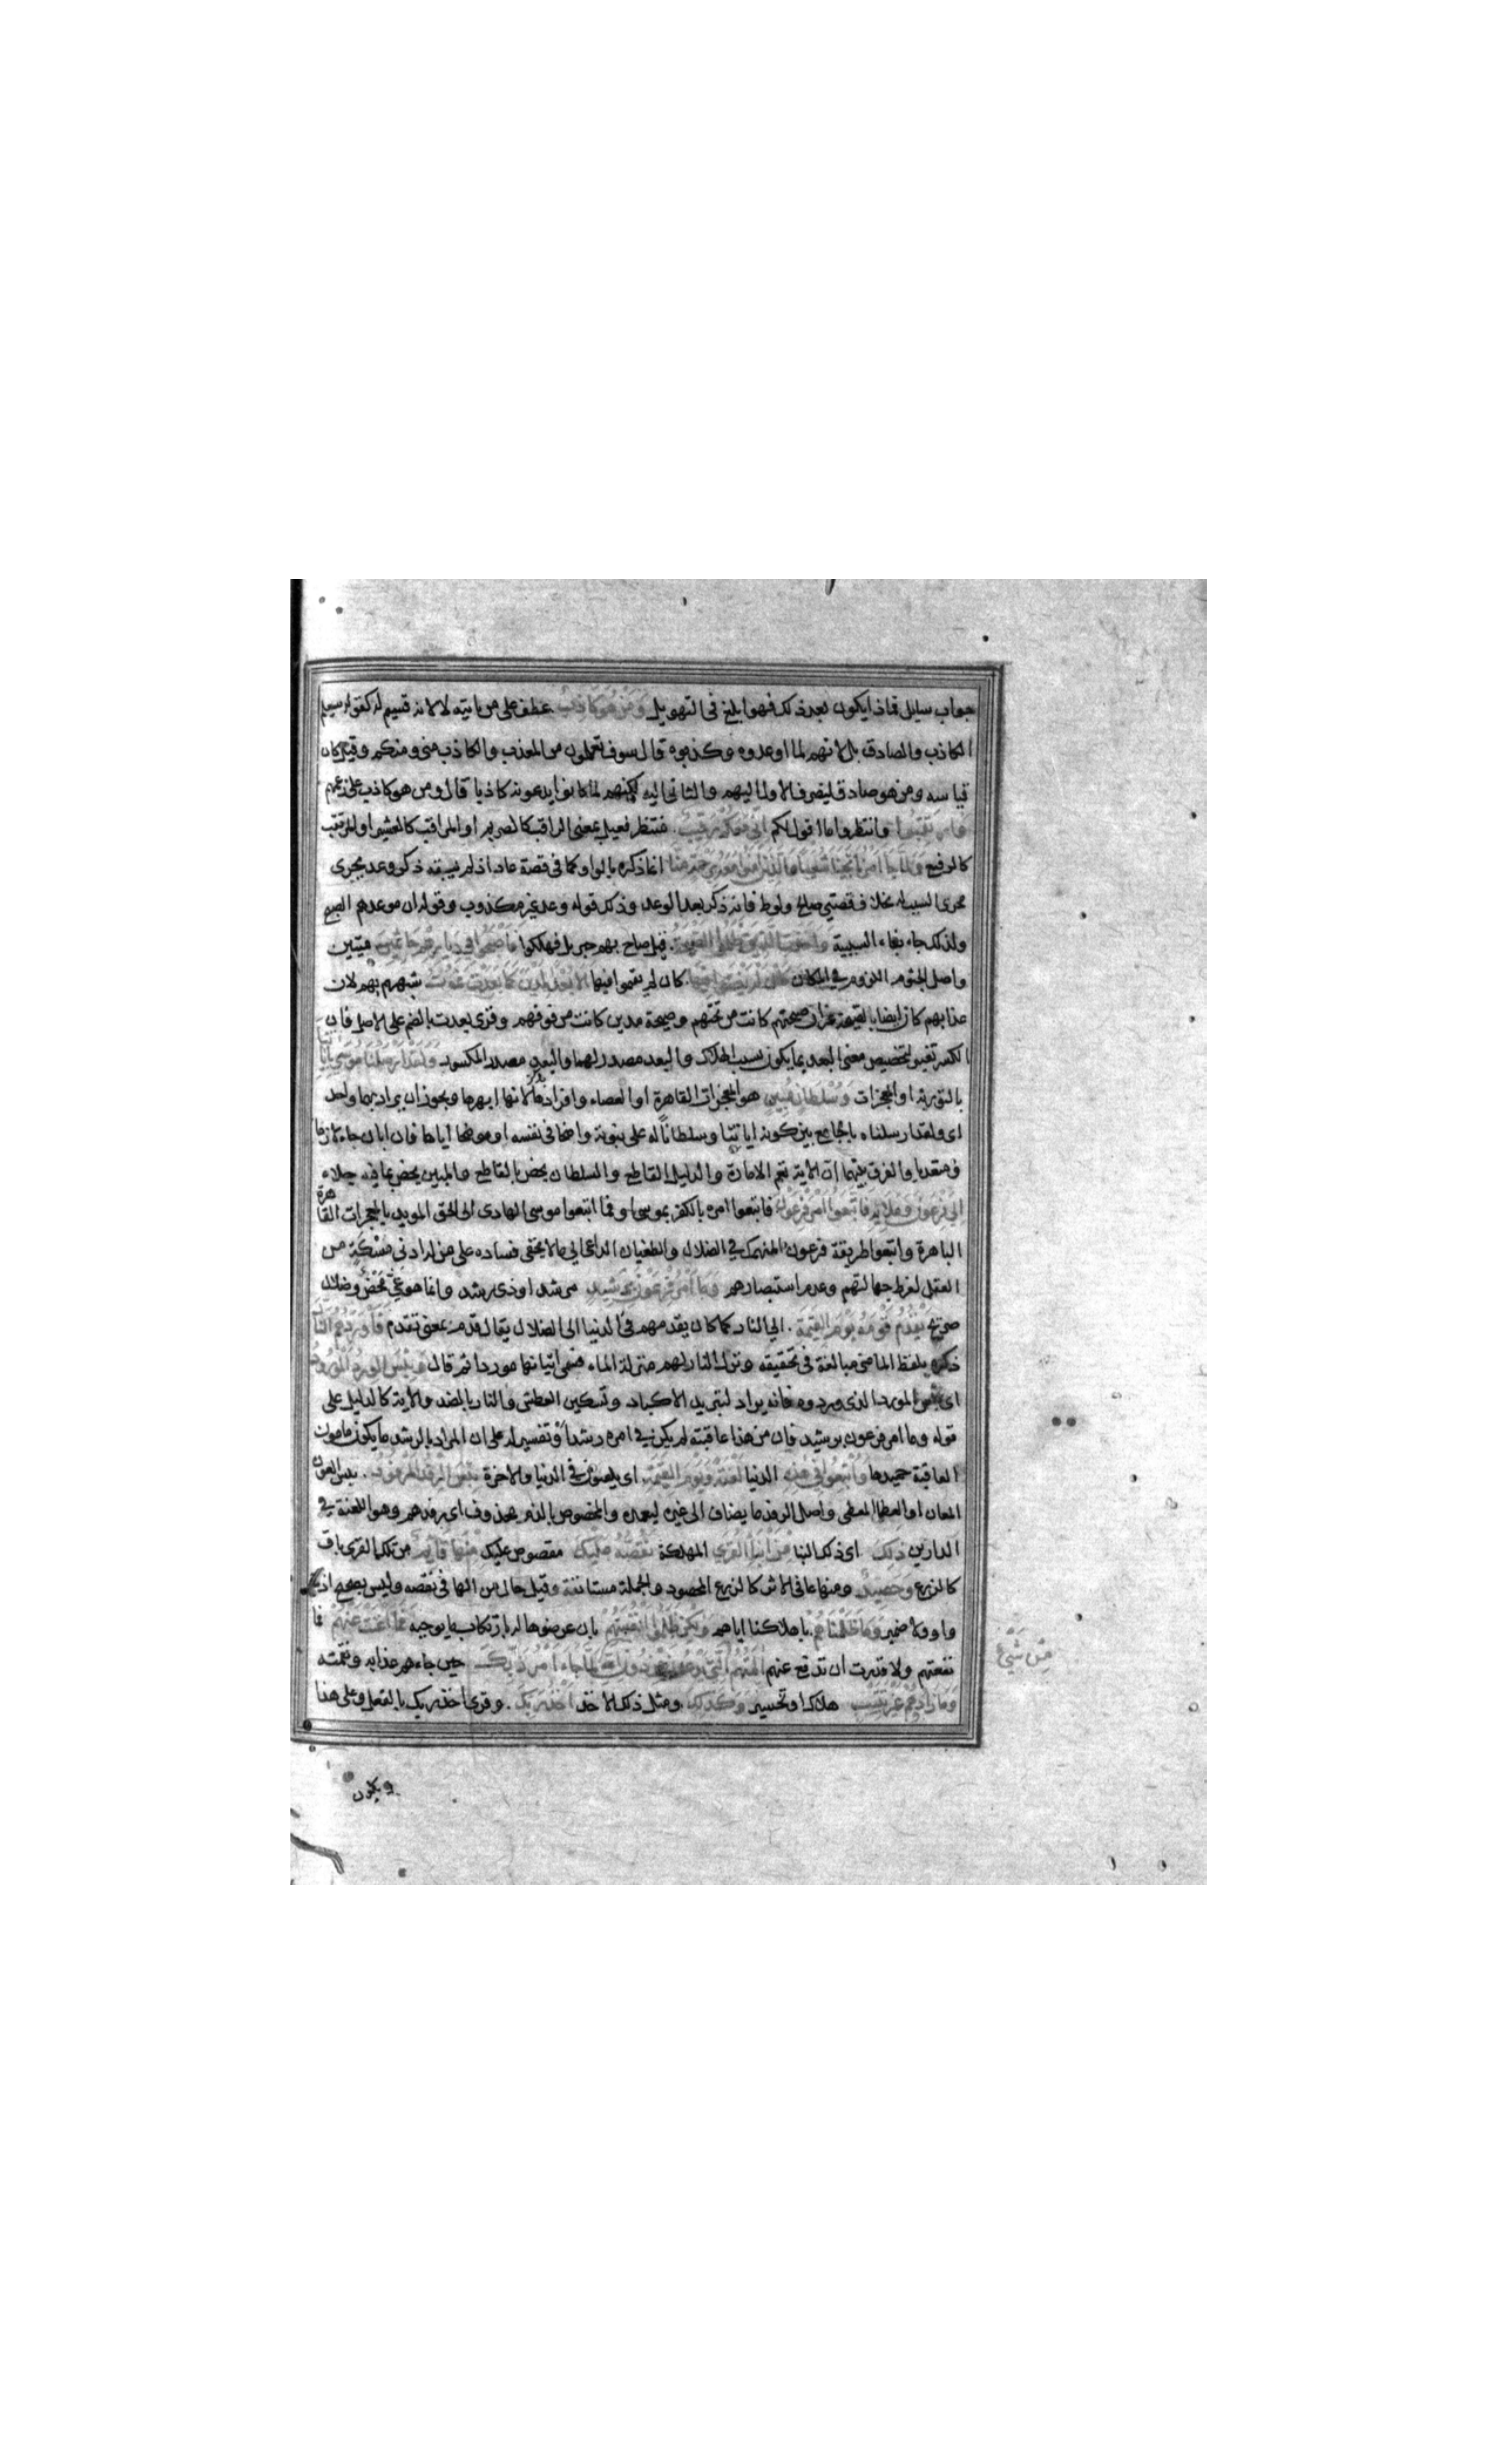 جواب سايل فماذا يكون بعد ذلك فهو ابلغ فى التهويل وَمَنْ هُوَ كَاذِبٌ عطف على من ياتيه لا لانه قسيم له كقولك ستعلم
الكاذب والصادق بل لانهم لما اوعدوه وكذبوه قال سوف تعلمون من المعذب والكاذب منى ومنكم وقيل كان
قياسه ومن هو صادق لينصرف الاول اليهم والثانى اليه لكنهم لما كانوا يدعونه كاذبا قال ومن هو كاذب على زعمهم
وَارْتَقِبُوا وانتظروا ما اقول لكم اِنّى مَعَكُمْ رَقيبٌ. منتظر فعيل بمعنى الراقب كالصريم او المراقب كالعشير او المرتقب
كالرفيع وَلَمَّا جَاءَ اَمْرُنَا نَجَّيْنَا شُعَيْبًا وَالَّذِيْنَ اٰمَنُوا مَعَهُ بِرَحْمَةٍ مِنَّا انما ذكره بالواو كما فى قصة عاد اذ لم يسبقه ذكر وعد يجرى
مجرى السبب له بخلاف قصتي صالح ولوط فانه ذكر بعد الوعد وذلك قوله وعد غير مكذوب وقوله ان موعدهم الصبح
ولذلك جاء بفاء السببية وَاَخَذَتِ الَّذِيْنَ ظَلَمُوا الصَّيْحَةُ. قيل صاح بهم جبريل فهلكوا فَاَصْبَحُوا فِى دِيَارِهِمْ جَاثِمِيْنَ ميتين
واصل الجثوم اللزوم في المكان كَاَنْ لَمْ يَغْنَوْا فِيْهَا. كان لم يقيموا فيها اَلَا بُعْدًا لِمَدْيَنَ كَمَا بَعِدَتْ ثَمُوْدُ شبههم بهم لان
عذابهم كان ايضا بالصيحة غير ان صيحتهم كانت من تحتهم وصيحة مدين كانت من فوقهم وقرئ بعدت بالضم على الاصل فان
الكسر تغيير لتخصيص معنى البعد بما يكون بسبب الهلاك والبعد مصدر لهما والبعد مصدر المكسور وَلَقَدْ اَرْسَلْنَا مُوْسٰى بِاٰيَاتِنَا
بالتورية او المعجزات وَسُلْطَانٍ مُبِيْنٍ هو المعجزات القاهرة او العصاء وافرادها بالذكر لانها ابهرها ويجوز ان يراد بهما واحد
اى ولقد ارسلناه بالجامع بين كونه اياتنا وسلطاناً له على نبوته واضحا فى نفسه او موضحا اياها فان ابان جاء لازما
ومتعديا والفرق بينهما ان الاية تعم الامارة والدليل القاطع والسلطان يخص بالقاطع والمبين يخص بما فيه جلاء
اِلٰى فِرْعَوْنَ وَمَلَائِهِ فَاتَّبَعُوا اَمْرَ فِرْعَوْنَ فاتبعوا امره بالكفر بموسى او فما اتبعوا موسى الهادى الى الحق المويد بالمعجرات القاهرة
الباهرة واتبعوا طريقة فرعون المنهمك في الضلال والطغيان الداعى الي ما لا يخفى فساده على من له ادنى مُسْكَةٍ من
العقل لفرط جهالتهم وعدم استبصارهم وَمَا اَمْرُ فِرْعَوْنَ بِرَشِيْدٍ مرشد او ذى رشد وانما هو غىّ مَحْضٌ وضلال
صريح يَقْدُمُ قَوْمَهُ يَوْمَ الْقِيٰمَةِ. الى النار كما كان يقدمهم فى الدنيا الى الضلال يقال قدم بمعنى تقدم فَاَوْرَدَهُمُ النَّارَ
ذكره بلفظ الماضى مبالغة فى تحقيقه ونزل النار لهم منزلة الماء فسمى اتيانها موردا ثم قال وَبِئْسَ الْوِرْدُ الْمَوْرُوْدُ
اى بئس المورد الذى وردوه فانه يراد لتبريد الاكباد وتسكين العطش والنار بالضد والاية كالدليل على
قوله وما امر فرعون برشيد فان من هذا عاقبته لم يكن في امره رشداً وتفسير له على ان المراد بالرشد ما يكون مامون
العاقبة حميدها وَاُتْبِعُوا فِى هٰذِهِ الدنيا لَعْنَةً وَيَوْمَ الْقِيٰمَةِ. اى يلعنون في الدنيا والاخرة بِئْسَ الرِّفْدُ الْمَرْفُوْدُ. بئس العون
المعان او العطا المعطى واصل الرفد ما يضاف الى غيره ليعمده والمخصوص بالذم محذوف اى رفدهم وهو اللعنة في
الدارين ذٰلِكَ اى ذلك النبا مِنْ اَنْبَاءِ الْقُرٰى المهلكة نَقُصُّهُ عَلَيْكَ مقصوص عليك مِنْهَا قَائِمٌ من تلك القرى باق
كالزرع وَحَصِيْدٌ ومنها عافى الاثر كالزرع المحصود والجملة مستانفة وقيل حال من الها فى نقصه وليس بصحيح اذ لا
واو ولا ضمير وَمَا ظَلَمْنَاهُمْ. باهلاكنا اياهم وَلٰكِنْ ظَلَمُوا اَنْفُسَهُمْ بان عرضوها له بارتكاب ما يوجبه فَمَا اَغْنَتْ عَنْهُمْ فما
نفعتهم ولا قدرت ان تدفع عنهم اٰلِهَتُهُمُ الَّتِى يَدْعُوْنَ مِنْ دُوْنِ اللهِ لَمَّا جَاءَ اَمْرُ رَبِّكَ حين جاءهم عذابه ونقمته
وَمَا زَادُوْهُمْ غَيْرَ تَتْبِيْبٍ هلاك او تخسير وَكَذٰلِكَ. ومثل ذلك الاخذ اَخْذُ رَبِّكَ. وقرئ اخذ ربك بالفعل وعلى هذا
مِنْ شَيْءٍ
ويكون